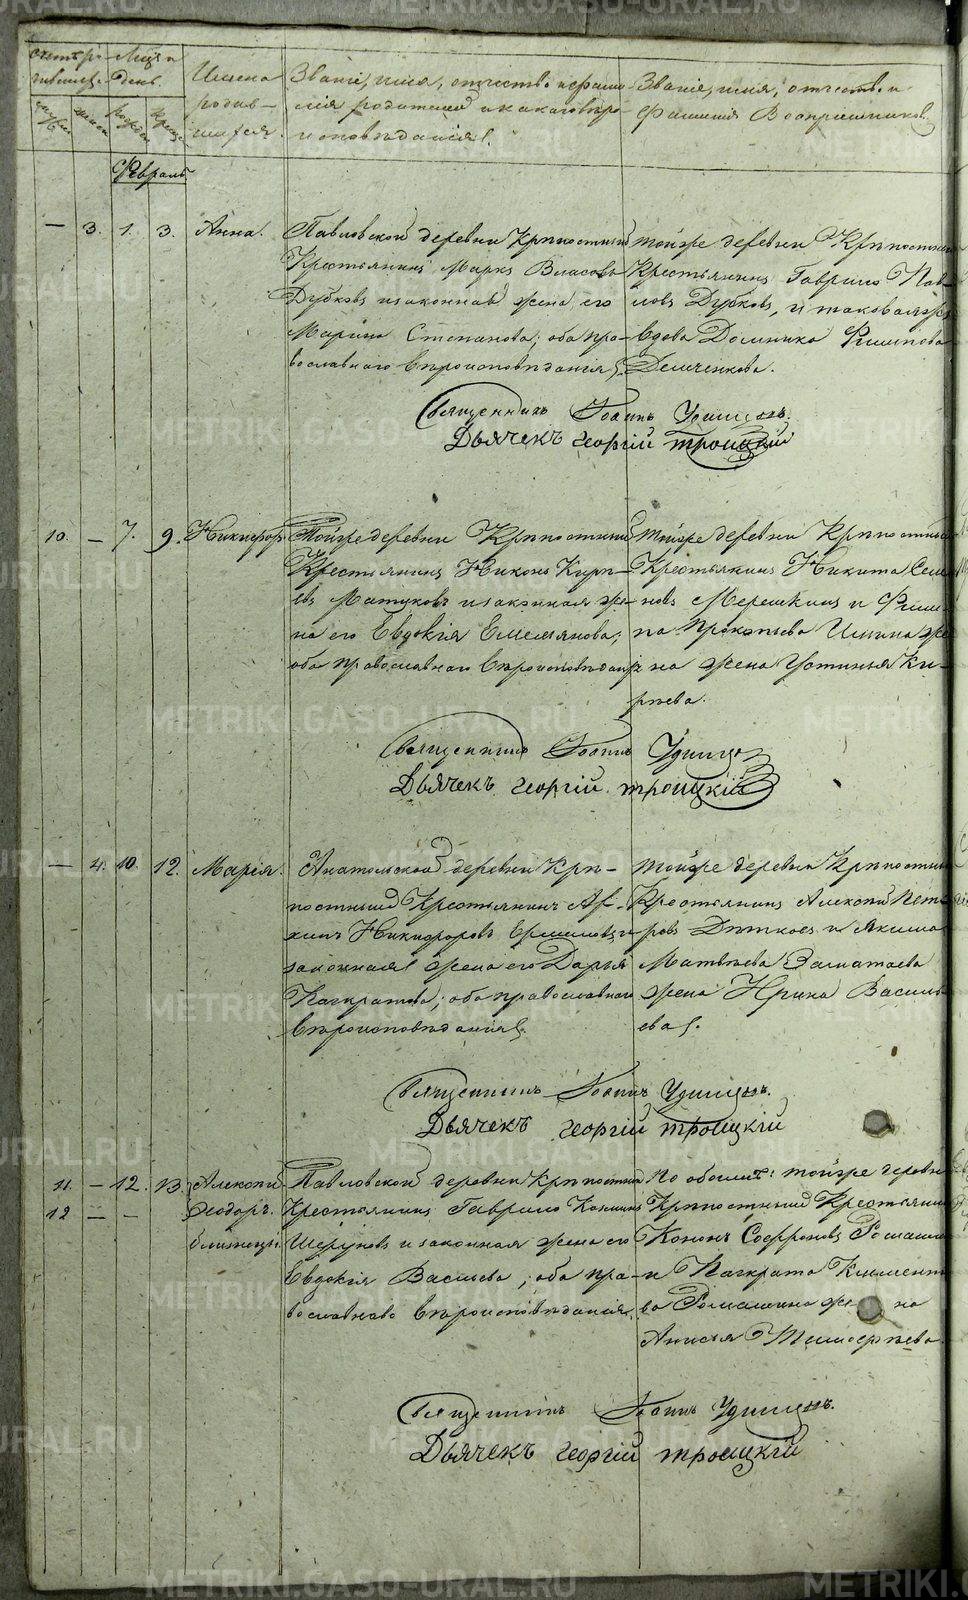 METRIKI.GASO-URAL.RU
Счетъ ро- Мцъ и
день.
Имена
родив-
шихся.
Званіе, имя, отчество и фами-
лія родителей и какаго вѣро-
исповѣданія.
Званіе, имя, отчество и
фамилія Воспріемниковъ.
Февраль
— 3. 1. 3. Анна.
Павловской деревни Крѣпостный
Крестьянинъ Марко Власовъ
Дубковъ и законная жена его
Марина Степанова; оба пра-
вославнаго вѣроисповѣданія.
тойже деревни Крѣпостный
Крестьянинъ Гаврило Пав-
ловъ Дубковъ, и таковаяже
вдова Домника Филипова
Демченкова.
Священникъ Іоаннъ Удинцовъ.
Дьячекъ Георгій Троицкій
10. — 7. 9. Никифоръ
Тойже деревни Крѣпостный
Крестьянинъ Никонъ Кирѣ-
евъ Матуковъ и законная же-
на его Евдокія Емельянова;
оба православнаго вѣроисповѣданія
тойже деревни Крѣпостный
Крестьянинъ Никита Семе-
новъ Мерешкинъ и Фили-
па Прокопьева Ильина же-
на жена Устинья Ки-
рѣева.
Священникъ Іоаннъ Удинцовъ
Дьячекъ Георгій Троицкій
— 4. 10. 12. Марія.
Анатольской деревни Крѣ-
постный Крестьянинъ Аѳ-
Никифоровъ Ермиловъ и
законная жена его Дарья
Панкратова; оба православнаго
вѣроисповѣданія.
тойже деревни Крѣпостный
Крестьянинъ Алексѣй Пет-
ровъ Дѣтковъ и Якима
Матвѣева Заматаева
жена Ирина Василь-
ева.
Священникъ Іоаннъ Удинцовъ.
Дьячекъ Георгій Троицкій
11. — 12. 13. Алексѣй
12 — — Ѳеодоръ.
близнецы.
Павловской деревни Крѣпостный
Крестьянинъ Гаврило Козминъ
Шеруновъ и законная жена его
Евдокія Васильева; оба пра-
вославнаго вѣроисповѣданія.
По обоимъ: тойже деревни
Крѣпостный Крестьянинъ
Кононъ Софроновъ Ромашинъ
и Панкрата Климент-
ва Ромашина жена
Анисья Тимоѳѣева.
Священникъ Іоаннъ Удинцовъ.
Дьячекъ Георгій Троицкій